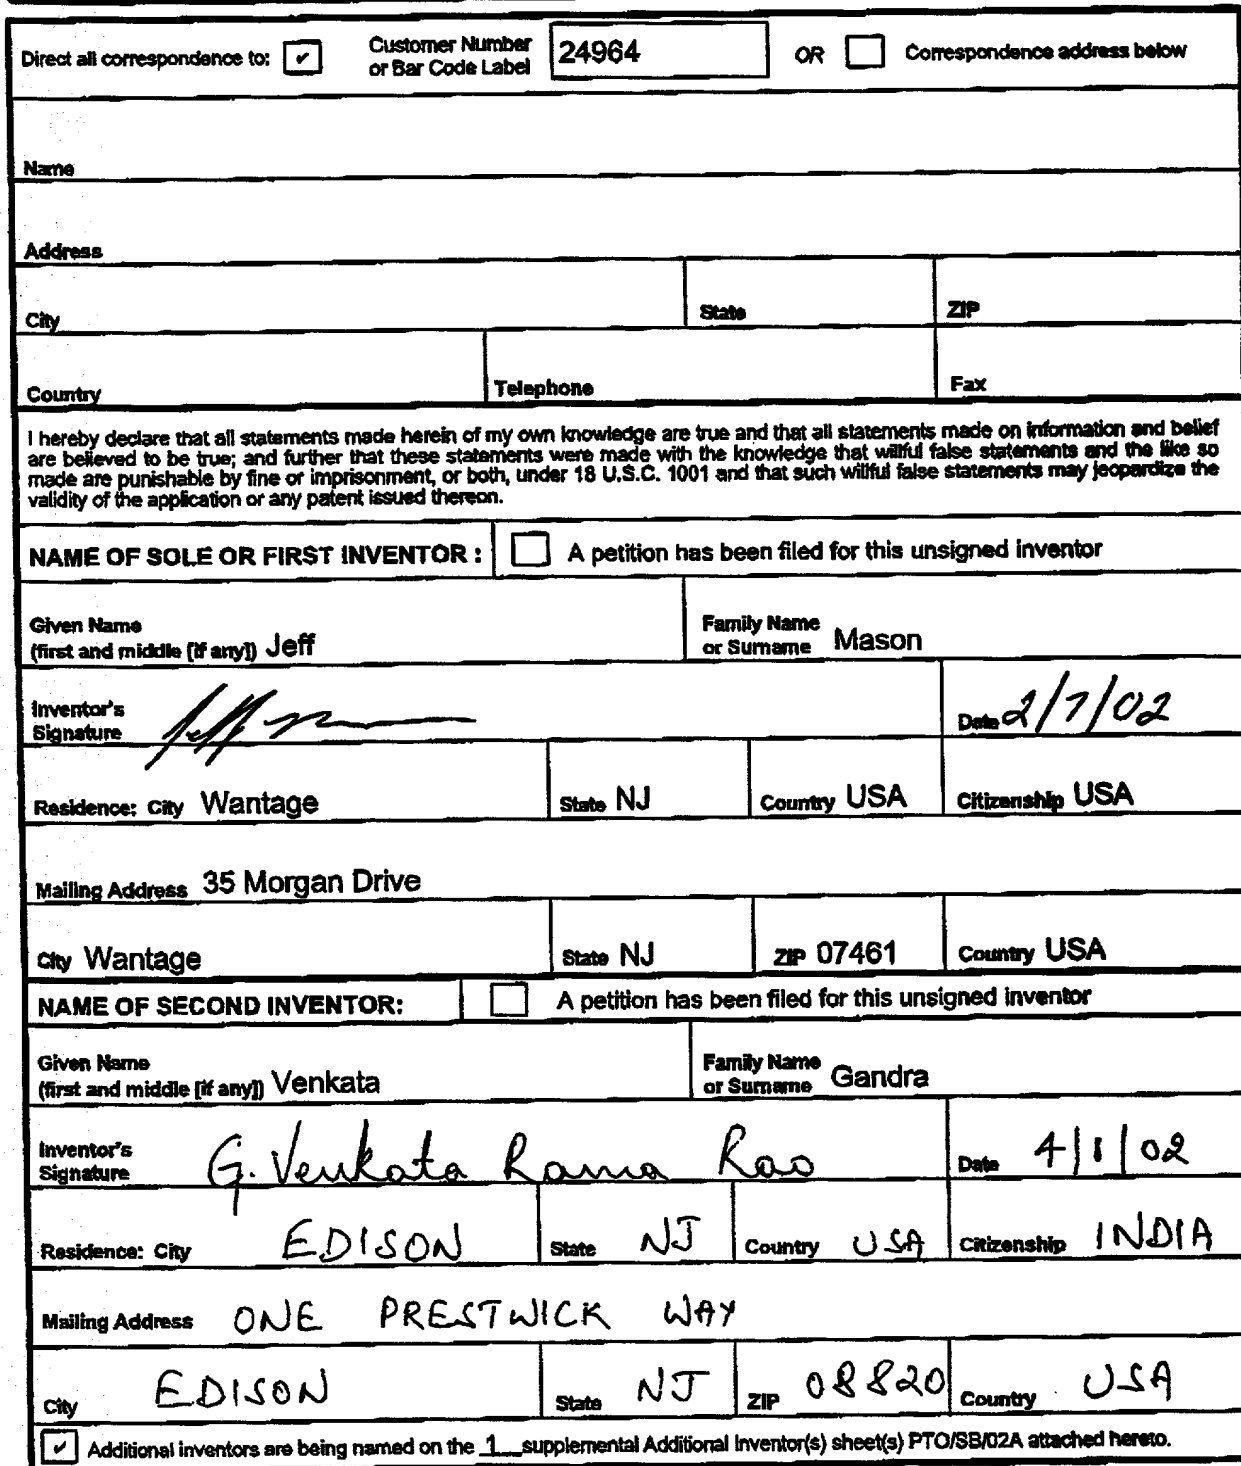 Direct all correspondence to: ✓ Customer Number or Bar Code Label 24964 OR Correspondence address below
Name
Address
City State ZIP
Country Telephone Fax
I hereby declare that all statements made herein of my own knowledge are true and that all statements made on information and belief
are believed to be true; and further that these statements were made with the knowledge that willful false statements and the like so
made are punishable by fine or imprisonment, or both, under 18 U.S.C. 1001 and that such willful false statements may jeopardize the
validity of the application or any patent issued thereon.
NAME OF SOLE OR FIRST INVENTOR : A petition has been filed for this unsigned inventor
Given Name
(first and middle [if any]) Jeff
Family Name
or Surname Mason
Inventor's
Signature
Date 2/7/02
Residence: City Wantage State NJ Country USA Citizenship USA
Mailing Address 35 Morgan Drive
City Wantage State NJ ZIP 07461 Country USA
NAME OF SECOND INVENTOR: A petition has been filed for this unsigned inventor
Given Name
(first and middle [if any]) Venkata
Family Name
or Surname Gandra
Inventor's
Signature G. Venkata Rama Rao
Date 4/1/02
Residence: City EDISON State NJ Country USA Citizenship INDIA
Mailing Address ONE PRESTWICK WAY
City EDISON State NJ ZIP 08820 Country USA
✓ Additional inventors are being named on the 1 supplemental Additional Inventor(s) sheet(s) PTO/SB/02A attached hereto.